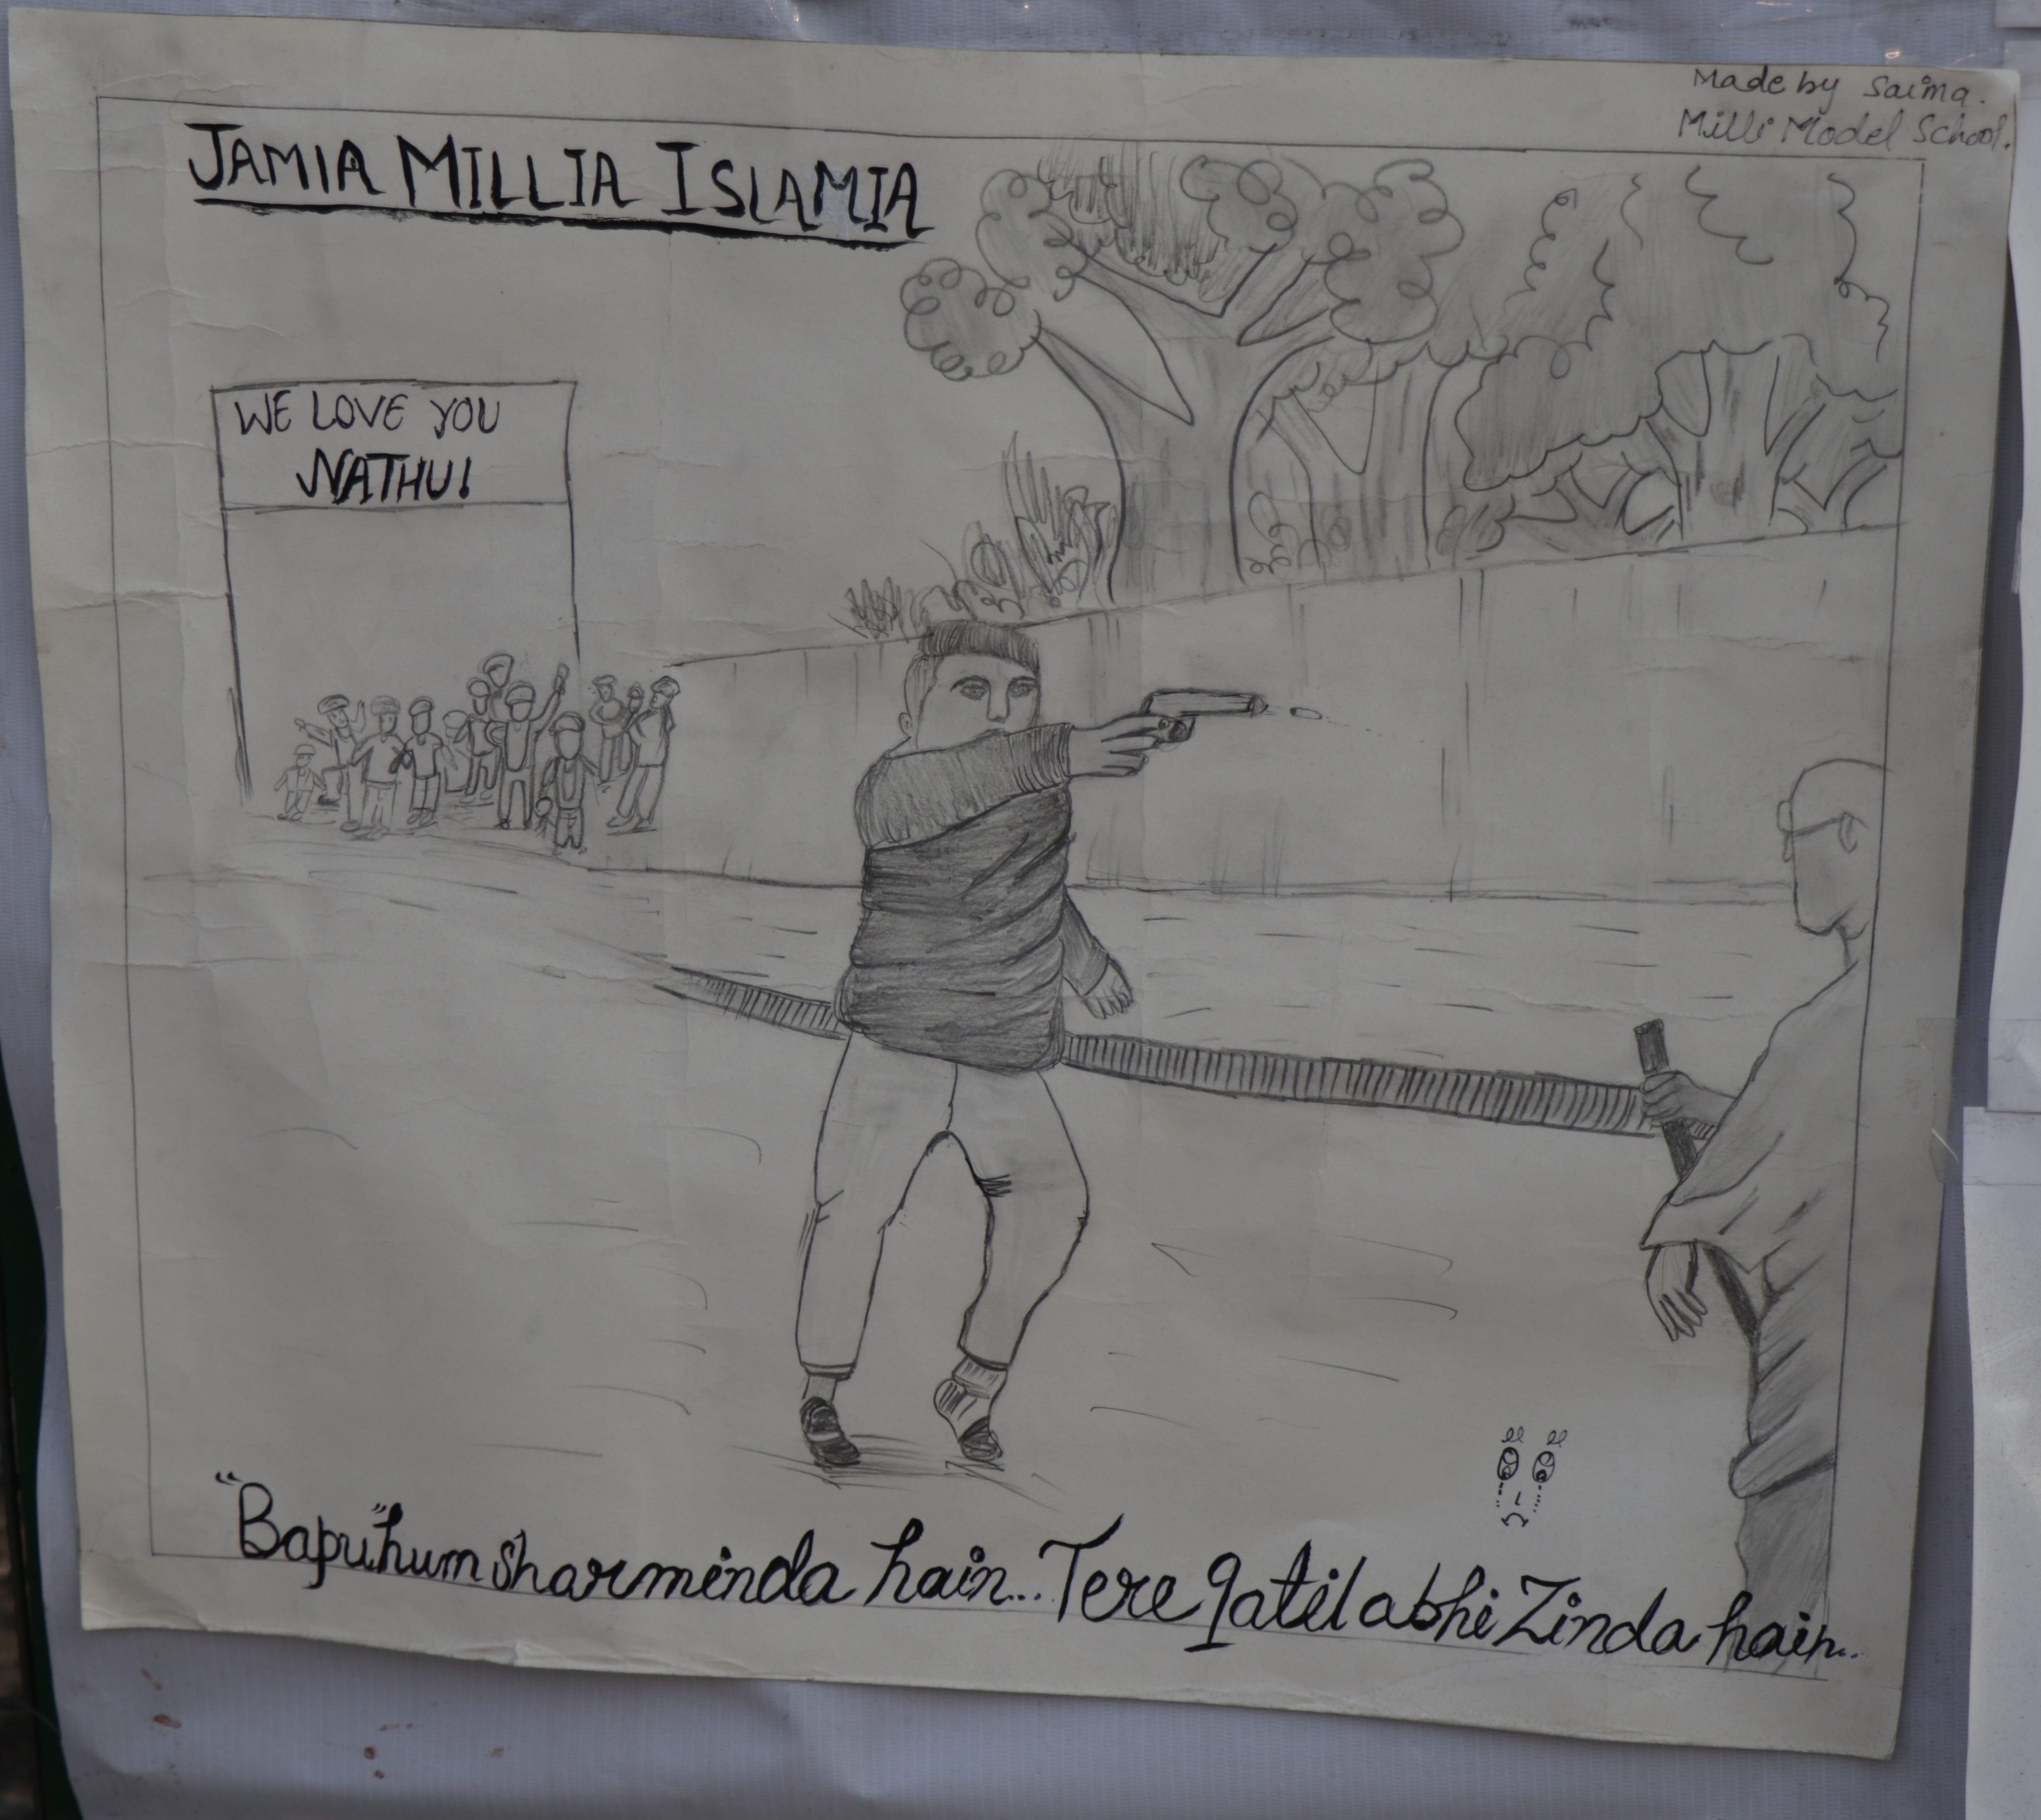 Made by Saima.
Milli Model School.
JAMIA MILLIA ISLAMIA
WE LOVE YOU
NATHU!
"Bapu" hum sharminda hain... Tere qatil abhi Zinda hain...